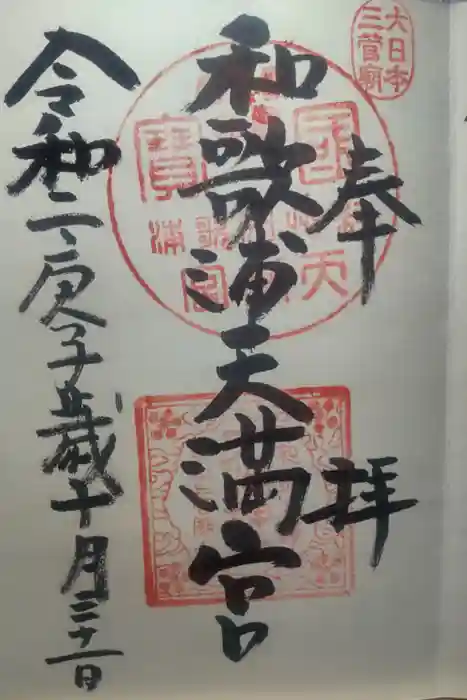 大日本
三菅廟
奉拝
和歌浦天満宮
令和二庚子歳十月三十一日